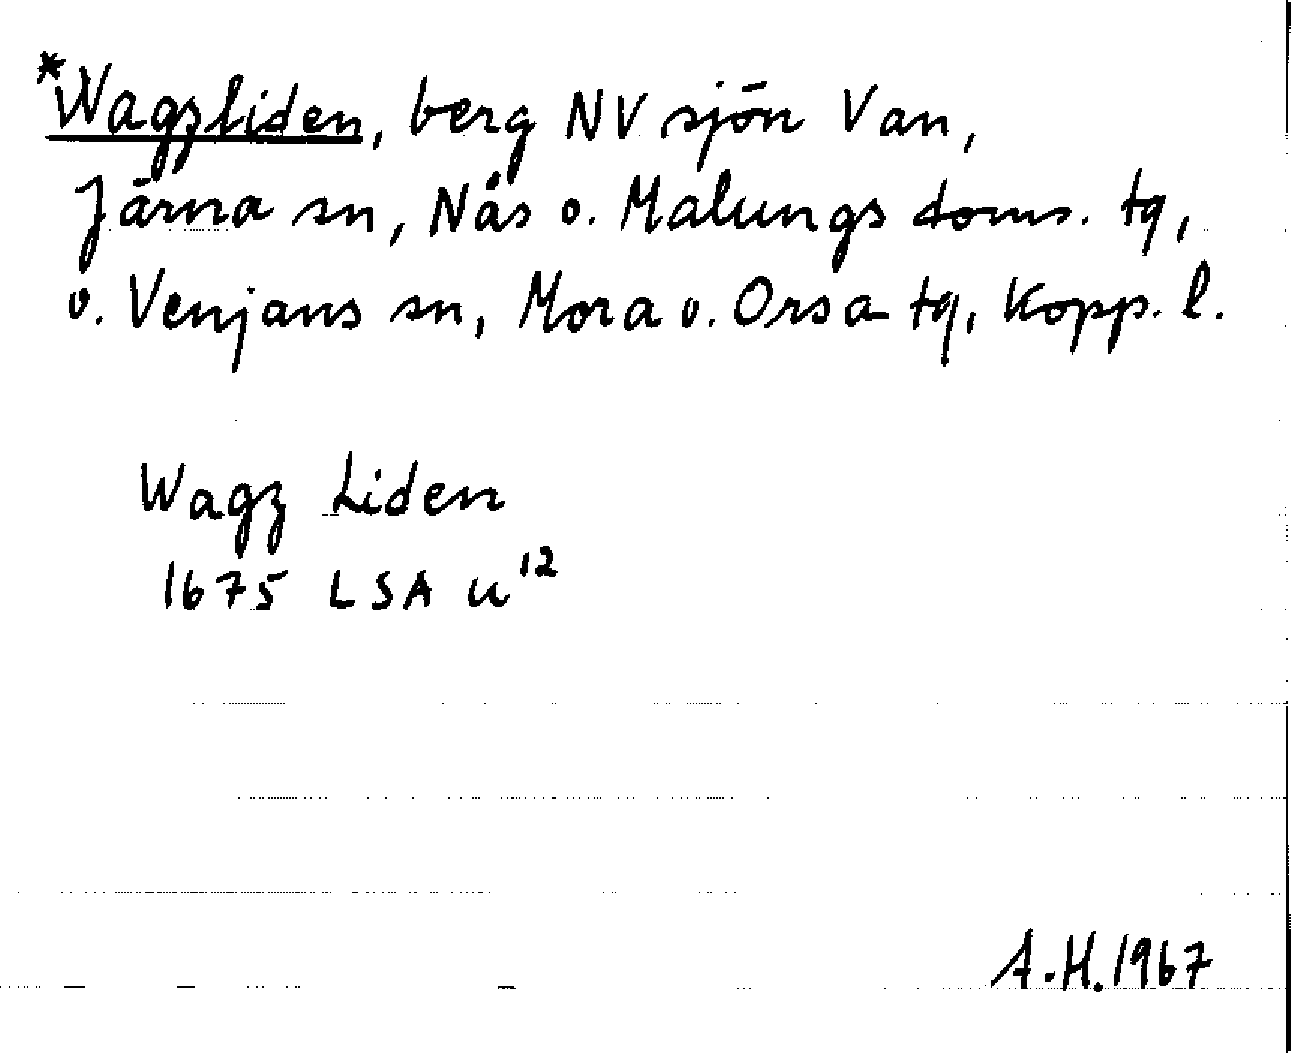 *Wagzliden, berg NV sjön Van,
Järna sn, Nås o. Malungs doms. tg,
o. Venjans sn, Mora o. Orsa tg, Kopp. l.
Wagz Liden
1675 LSA U¹²
A.H. 1967